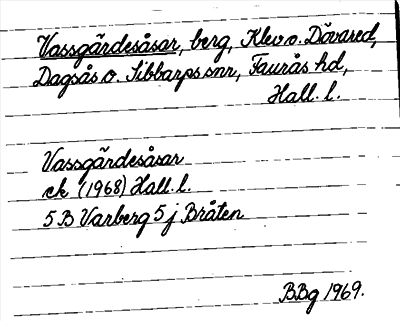 Vassgärdesåsar, berg, Klev o. Dövared,
Dagsås o. Sibbarps snr, Faurås hd,
Hall. l.
Vassgärdesåsar
ek (1968) Hall. l.
5 B Varberg 5 j Bråten
BBg 1969.